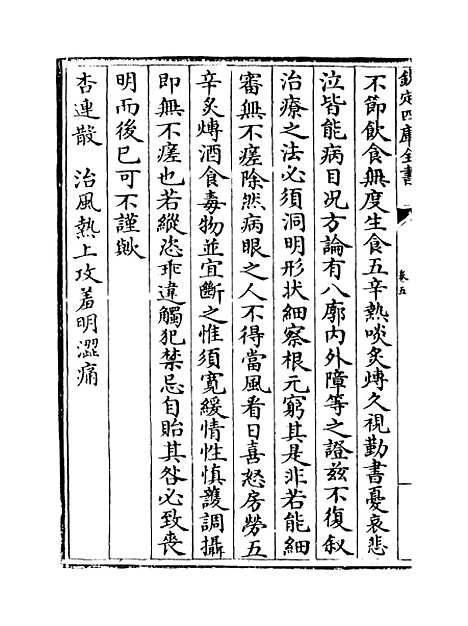 欽定四庫全書
卷五
不節飲食無度生食五辛熱啖炙煿久視勤書憂哀悲
泣皆能病目况方論有八廓内外障等之證兹不復叙
治療之法必須洞明形状細察根元窮其是非若能細
審無不瘥除然病眼之人不得當風看日喜怒房勞五
辛炙煿酒食毒物並宜斷之惟須寛緩情性慎護調攝
即無不瘥也若縱恣乖違觸犯禁忌自貽其咎必致喪
明而後已可不謹歟
杏連散　治風熱上攻羞明澀痛